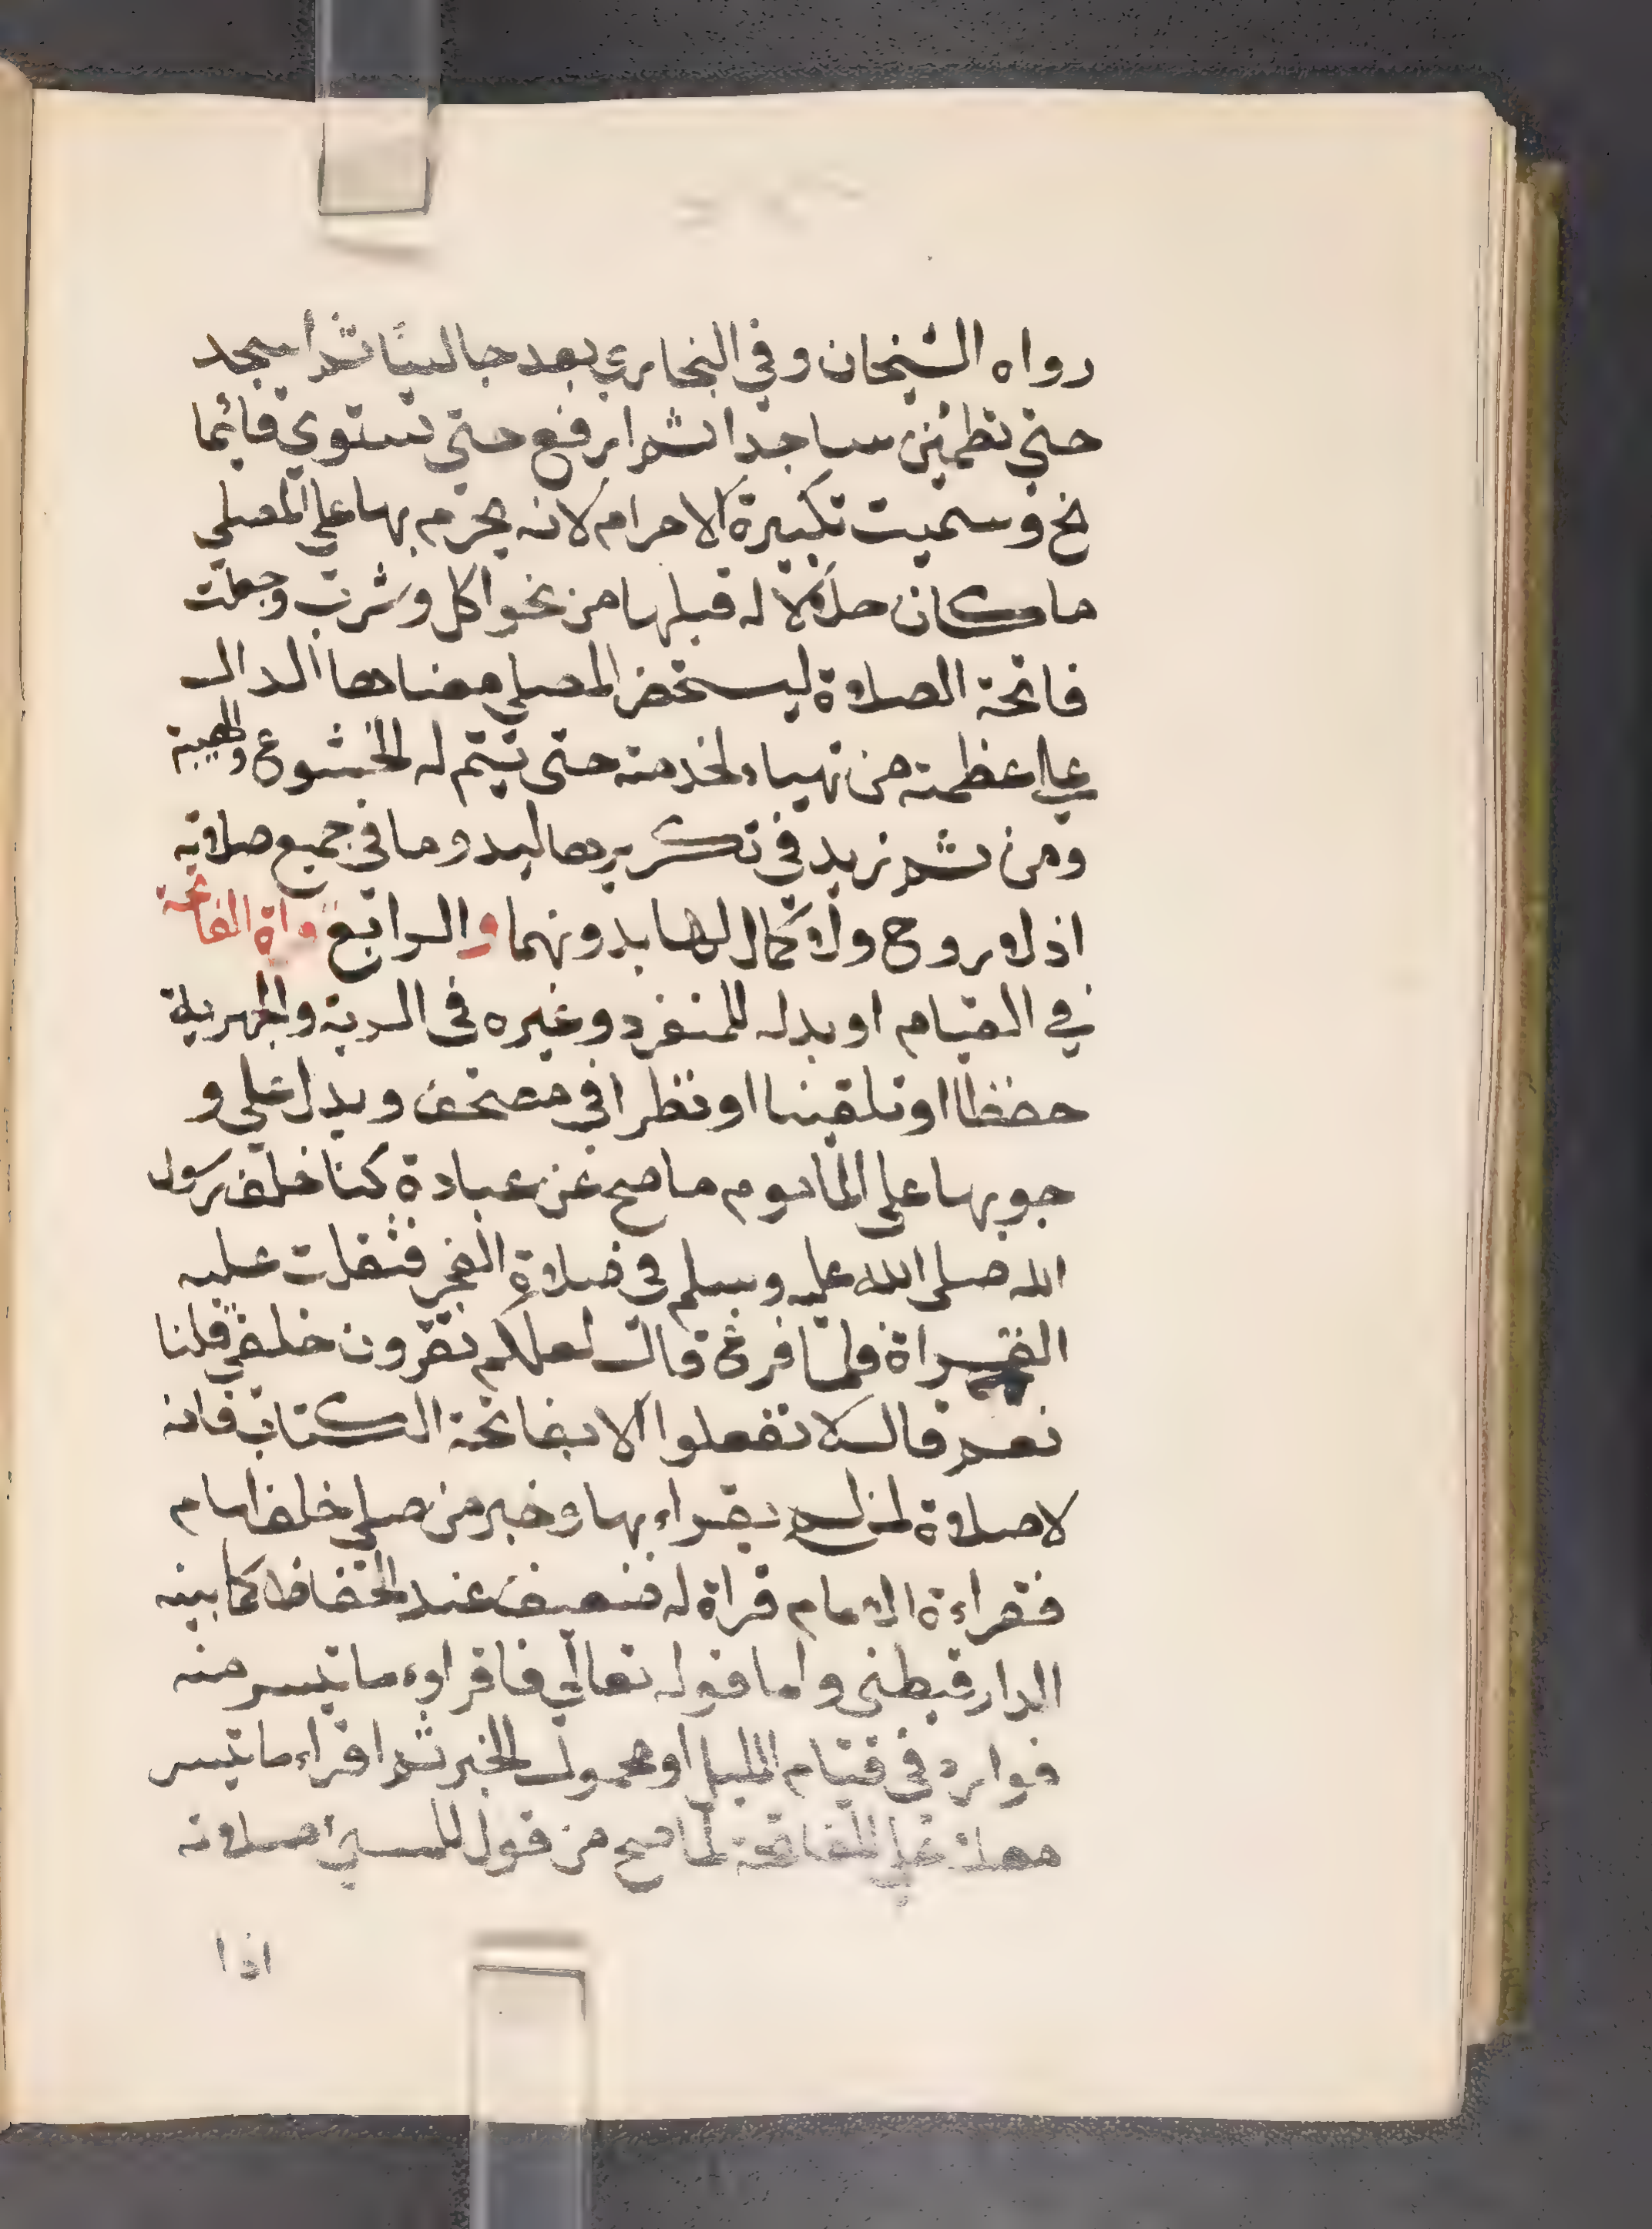 رواه الشيخان وفي البخاري بعد جالسًا ثم اسجد
حتي تطمئن ساجدا ثم ارفع حتي تستوي قائما
نخ وسميت تكبيرة الاحرام لانه يحرم بها علي المصلي
ما كان حلالا له قبلها من نحو اكل وشرب وجعلت
فاتحة الصلاة ليستحضر المصلي معناها الدال
علي عظمته من تهياء لخدمته حتى تتم له الخشوع والهيبة
ومن ثم زيد في تكريرها ليدوما في جميع صلاته
اذ لا روح ولا كمال لها بدونهما والرابع قراة الفاتحة
في القيام او بدله للمنفرد وغيره في السرية والجهرية
حفظا او تلقينا او نظرا في مصحف ويدل علي و
جوبها على الماموم ما صح عن عبادة كنا خلف رسول
الله صلى الله عليه وسلم في صلاة الفجر فثقلت عليه
القراة فلما فرغ قال لعلكم تقرون خلفي قلنا
نعم قال لا تفعلوا الا بفاتحة الكتاب فانه
لا صلاة لمن لم يقراء بها وخبر من صلي خلف امام
فقراءة الامام قراة له ضعيف عند الحفاظ كما بينه
الدارقطني واما قوله تعالي فاقراوء ما تيسر منه
فوارد في قيام الليل او محمول كخبر ثم اقراء ما تيسر
معك علي الفاتحة لما صح من قول للمسيئ صلاته
اذا